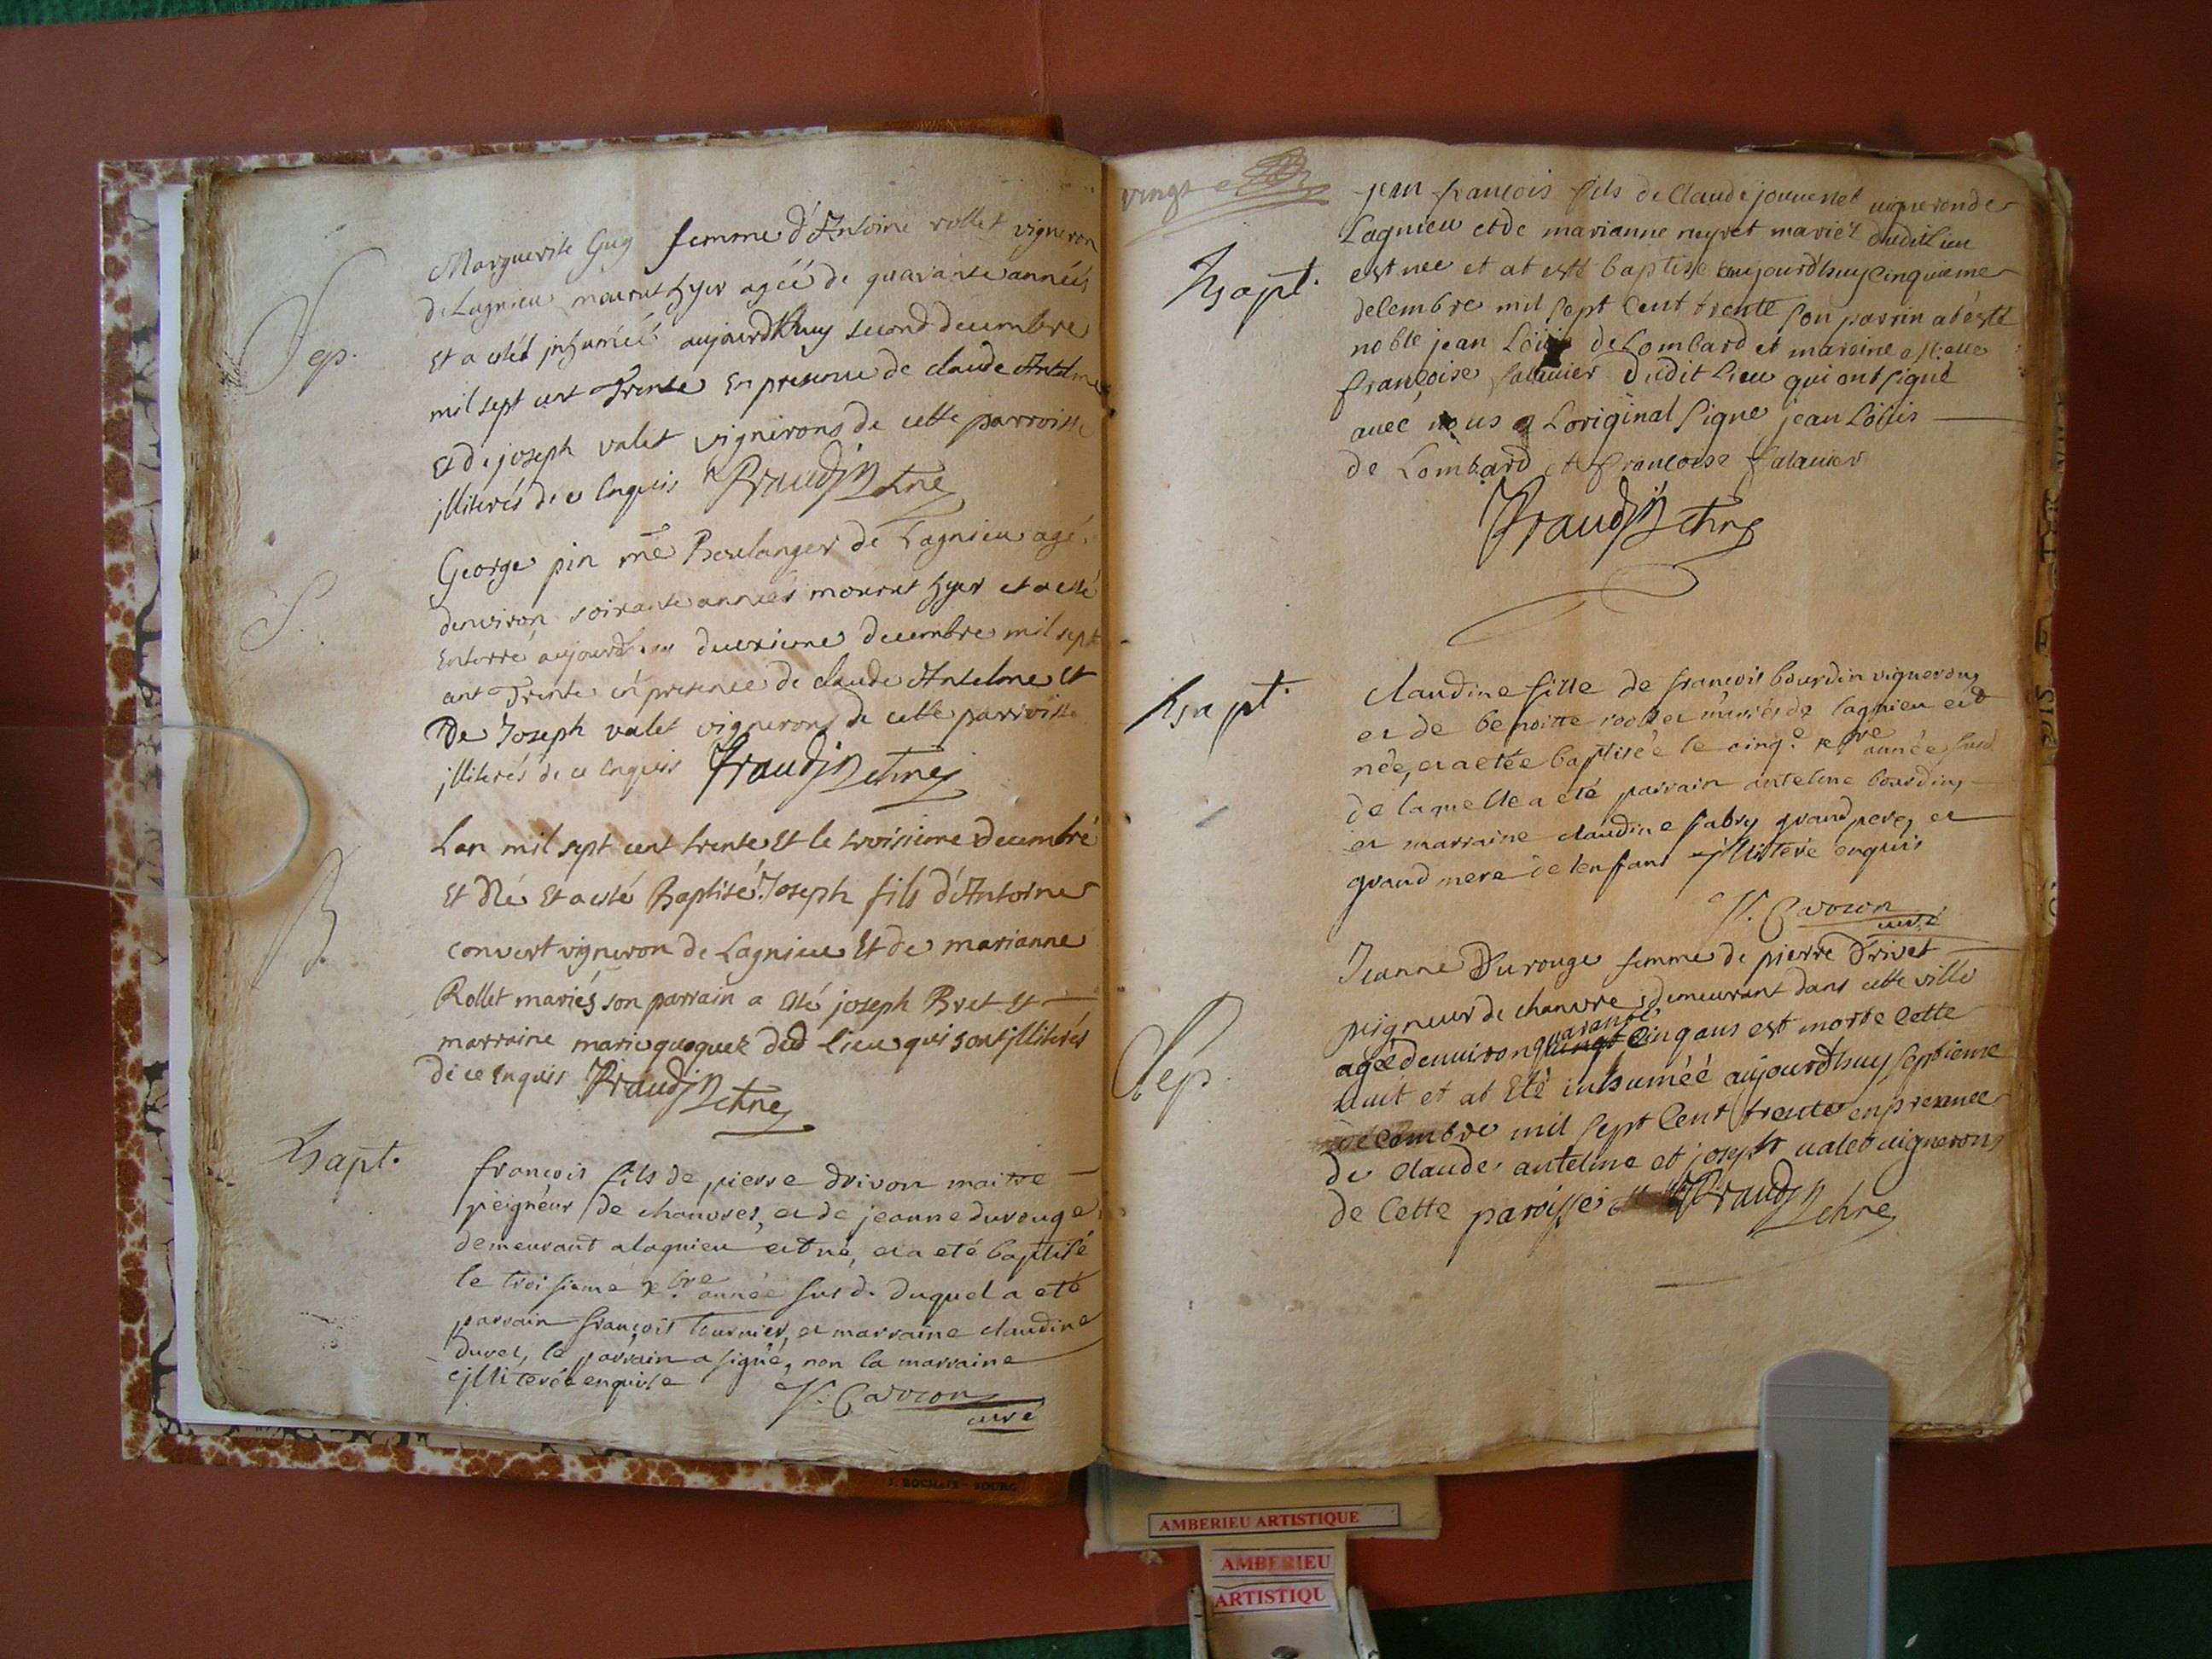 Sep.
Marguerite Guy femme d'Antoine rollet vigneron
de Lagnieu mourut hyer agéé de quarante annéés
Et a esté jnhuméé aujourdhuy second decembre
mil sept cent Trente En presence de claude Antelme
Et de joseph valet vignerons de cette parroisse
jlliterés de ce Enquis Praudin
S.
George pin me Boulanger de Lagnieu agé
denviron soixante annéés mourut hyer et a esté
Enterré aujourdhuy deuxieme decembre mil sept
cent Trente en presence de claude Antelme et
De Joseph valet vignerons de cette parroisse
jlliterés de ce Enquis Praudin
B.
Lan mil sept cent trente Et le troisieme decembre
Est Né Et a esté Baptisé Joseph fils d'Antoine
convert vigneron de Lagnieu Et de marianne
Rollet mariés son parrain a Esté joseph Bret Et
marraine marie quoquet dud lieu qui sont jlliterés
de ce Enquis Praudin
Bapt.
françois fils de pierre drivon maitre
peigneur de chanvres, et de jeanne durouge
demeurant a lagnieu est né, et a eté baptisé
le troisieme xbre année sus d. duquel a eté
parrain françois tournier, et marraine claudine
duret, le parrain a signé, non la marraine
jlliterée enquise V. Carron
curé
vingt
jean francois fils de Claude jouuenet uigneronde
Lagnieu et de marianne mariez dudit Lieu
Bapt.
est nee et at esté baptisé aujourdhuy cinquieme
decembre mil sept Cent trente son parrin at ésté
noble jean Loüis de Lombard et maraine
françoise Salauier dudit Lieu qui ont signé
auec nous a Loriginal signe jean Loüis
de Lombard et françoise Salauier
Praudin
Bapt.
claudine fille de françois bourdin vigneron,
et de benoitte mariés de lagnieu est
née, et a etée baptisée le cinq.e xbre année susd.
de laquelle a eté parrain antelme bourdin,
et marraine claudine fabry grand pere, et
grand mere de lenfant jlliteré enquis
V. Carron
curé
Sep.
Jeanne Durouge femme de pierre Drivet
peigneur de chanvre demeurant dans cette ville
agéé denuiron quarante Cinq ans est morte Cette
nuit et at Eté inhuméé aujourdhuy septieme
decembre mil sept Cent trente en presence
de claude antelme et joseph ualet uignerons
de Cette paroisse Praudin
J. ROCHAIX - BOURG
AMBERIEU ARTISTIQUE
AMBERIEU
ARTISTIQU